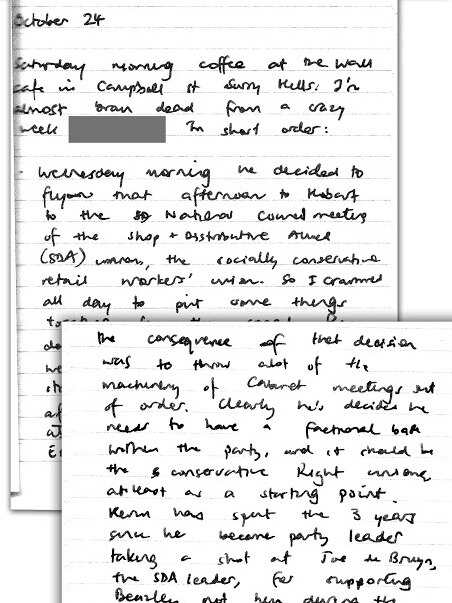 October 24
Saturday morning coffee at the Wall
cafe in Campbell St Surry Hills. I'm
almost brain dead from a crazy
week In short order:
- Wednesday morning he decided to
fly that afternoon to Hobart
to the National Council meeting
of the Shop + Distributive Allied
(SDA) union, the socially conservative
retail workers' union. So I crammed
all day to put some things
the consequence of that decision
was to throw alot of the
machinery of Cabinet meetings out
of order. Clearly he's decided he
needs to have a factional base
within the party, and it should be
the conservative Right unions,
at least as a starting point.
Kevin has spent the 3 years
since he became party leader
taking a shot at Joe de Bruyn,
the SDA leader, for supporting
Beazley not him during the